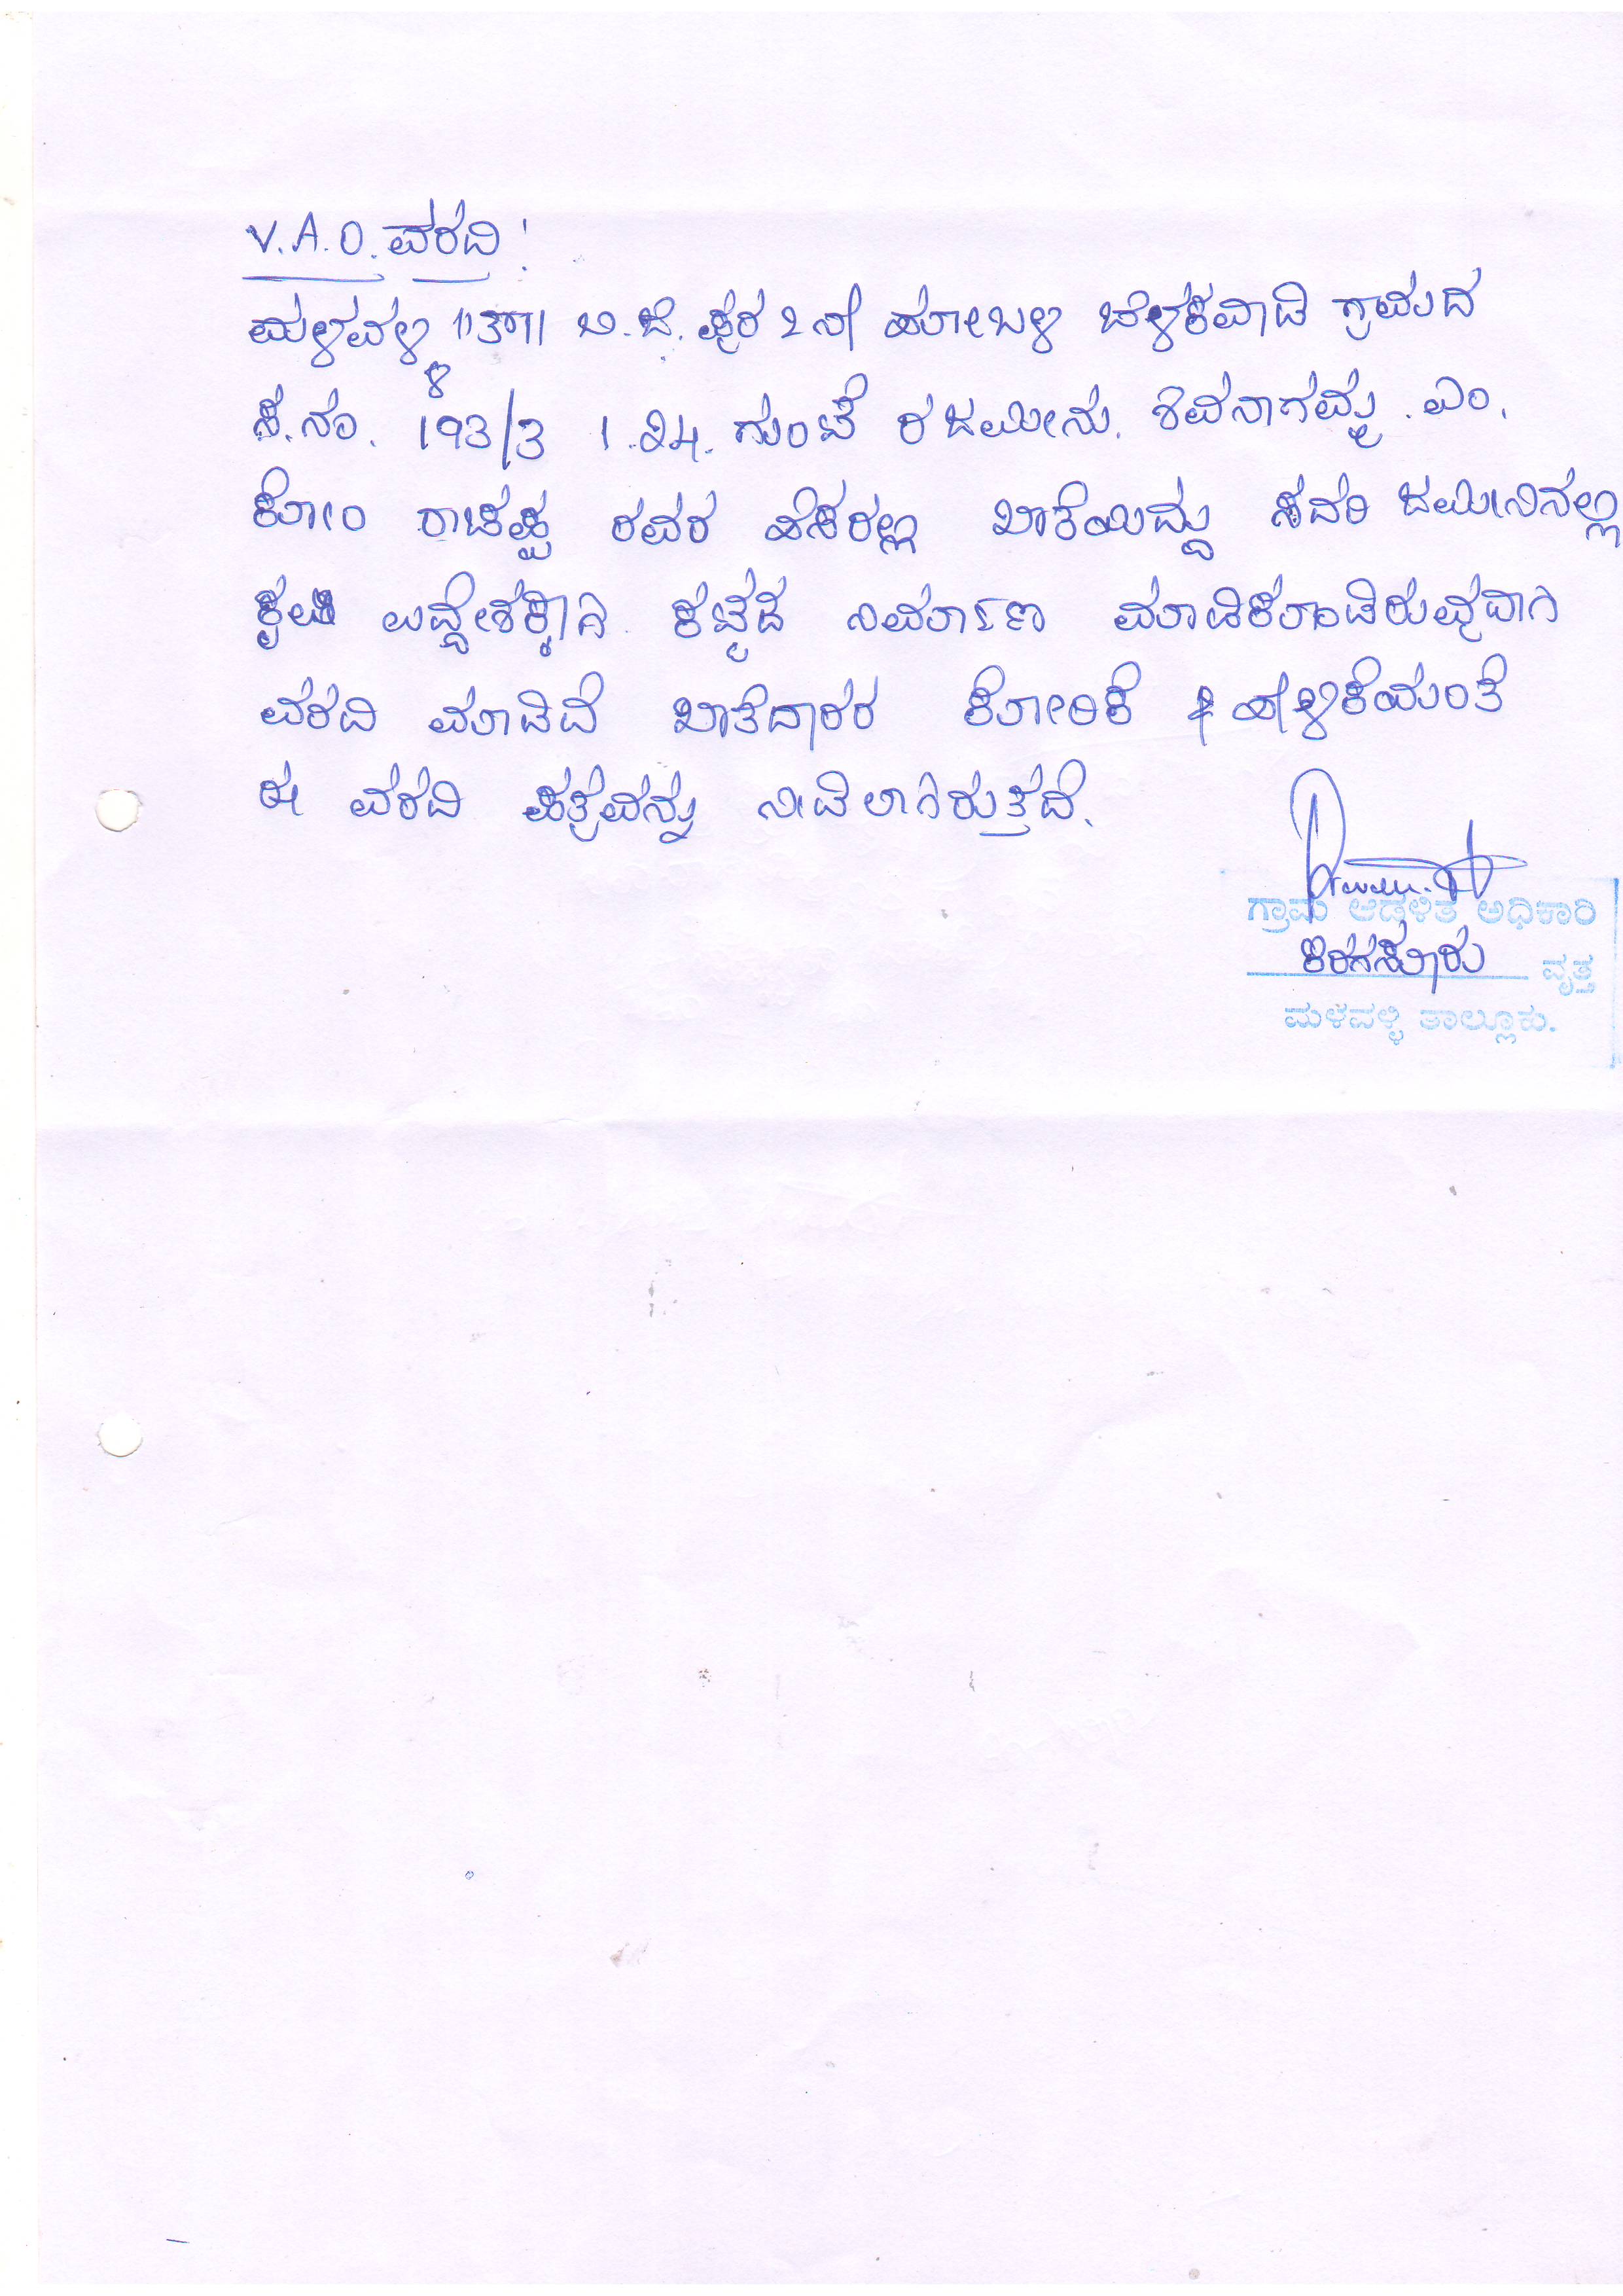 V.A.O. ವರದಿ:
ಮಳವಳ್ಳಿ ತಾ|| ಬಿ.ಜಿ. ಪುರ 2ನೇ ಹೋಬಳಿ ಬೆಳಕವಾಡಿ ಗ್ರಾಮದ
ಸ.ನಂ. 193/3 1.24. ಗುಂಟೆ ರ ಜಮೀನು. ಶಿವನಾಗಮ್ಮ. ಎಂ.
ಕೋಂ ರಾಚಪ್ಪ ರವರ ಹೆಸರಲ್ಲಿ ಖಾತೆಯಿದ್ದು ಸದರಿ ಜಮೀನಿನಲ್ಲಿ
ಕೃಷಿ ಉದ್ದೇಶಕ್ಕಾಗಿ ಕಟ್ಟಡ ನಿರ್ಮಾಣ ಮಾಡಿಕೊಂಡಿರುವುದಾಗಿ
ವರದಿ ಮಾಡಿದೆ ಖಾತೆದಾರರ ಕೋರಿಕೆ & ಹೇಳಿಕೆಯಂತೆ
ಈ ವರದಿ ಪತ್ರವನ್ನು ನೀಡಲಾಗಿರುತ್ತದೆ.
ಗ್ರಾಮ ಆಡಳಿತ ಅಧಿಕಾರಿ
ವೃತ್ತ
ಮಳವಳ್ಳಿ ತಾಲ್ಲೂಕು.